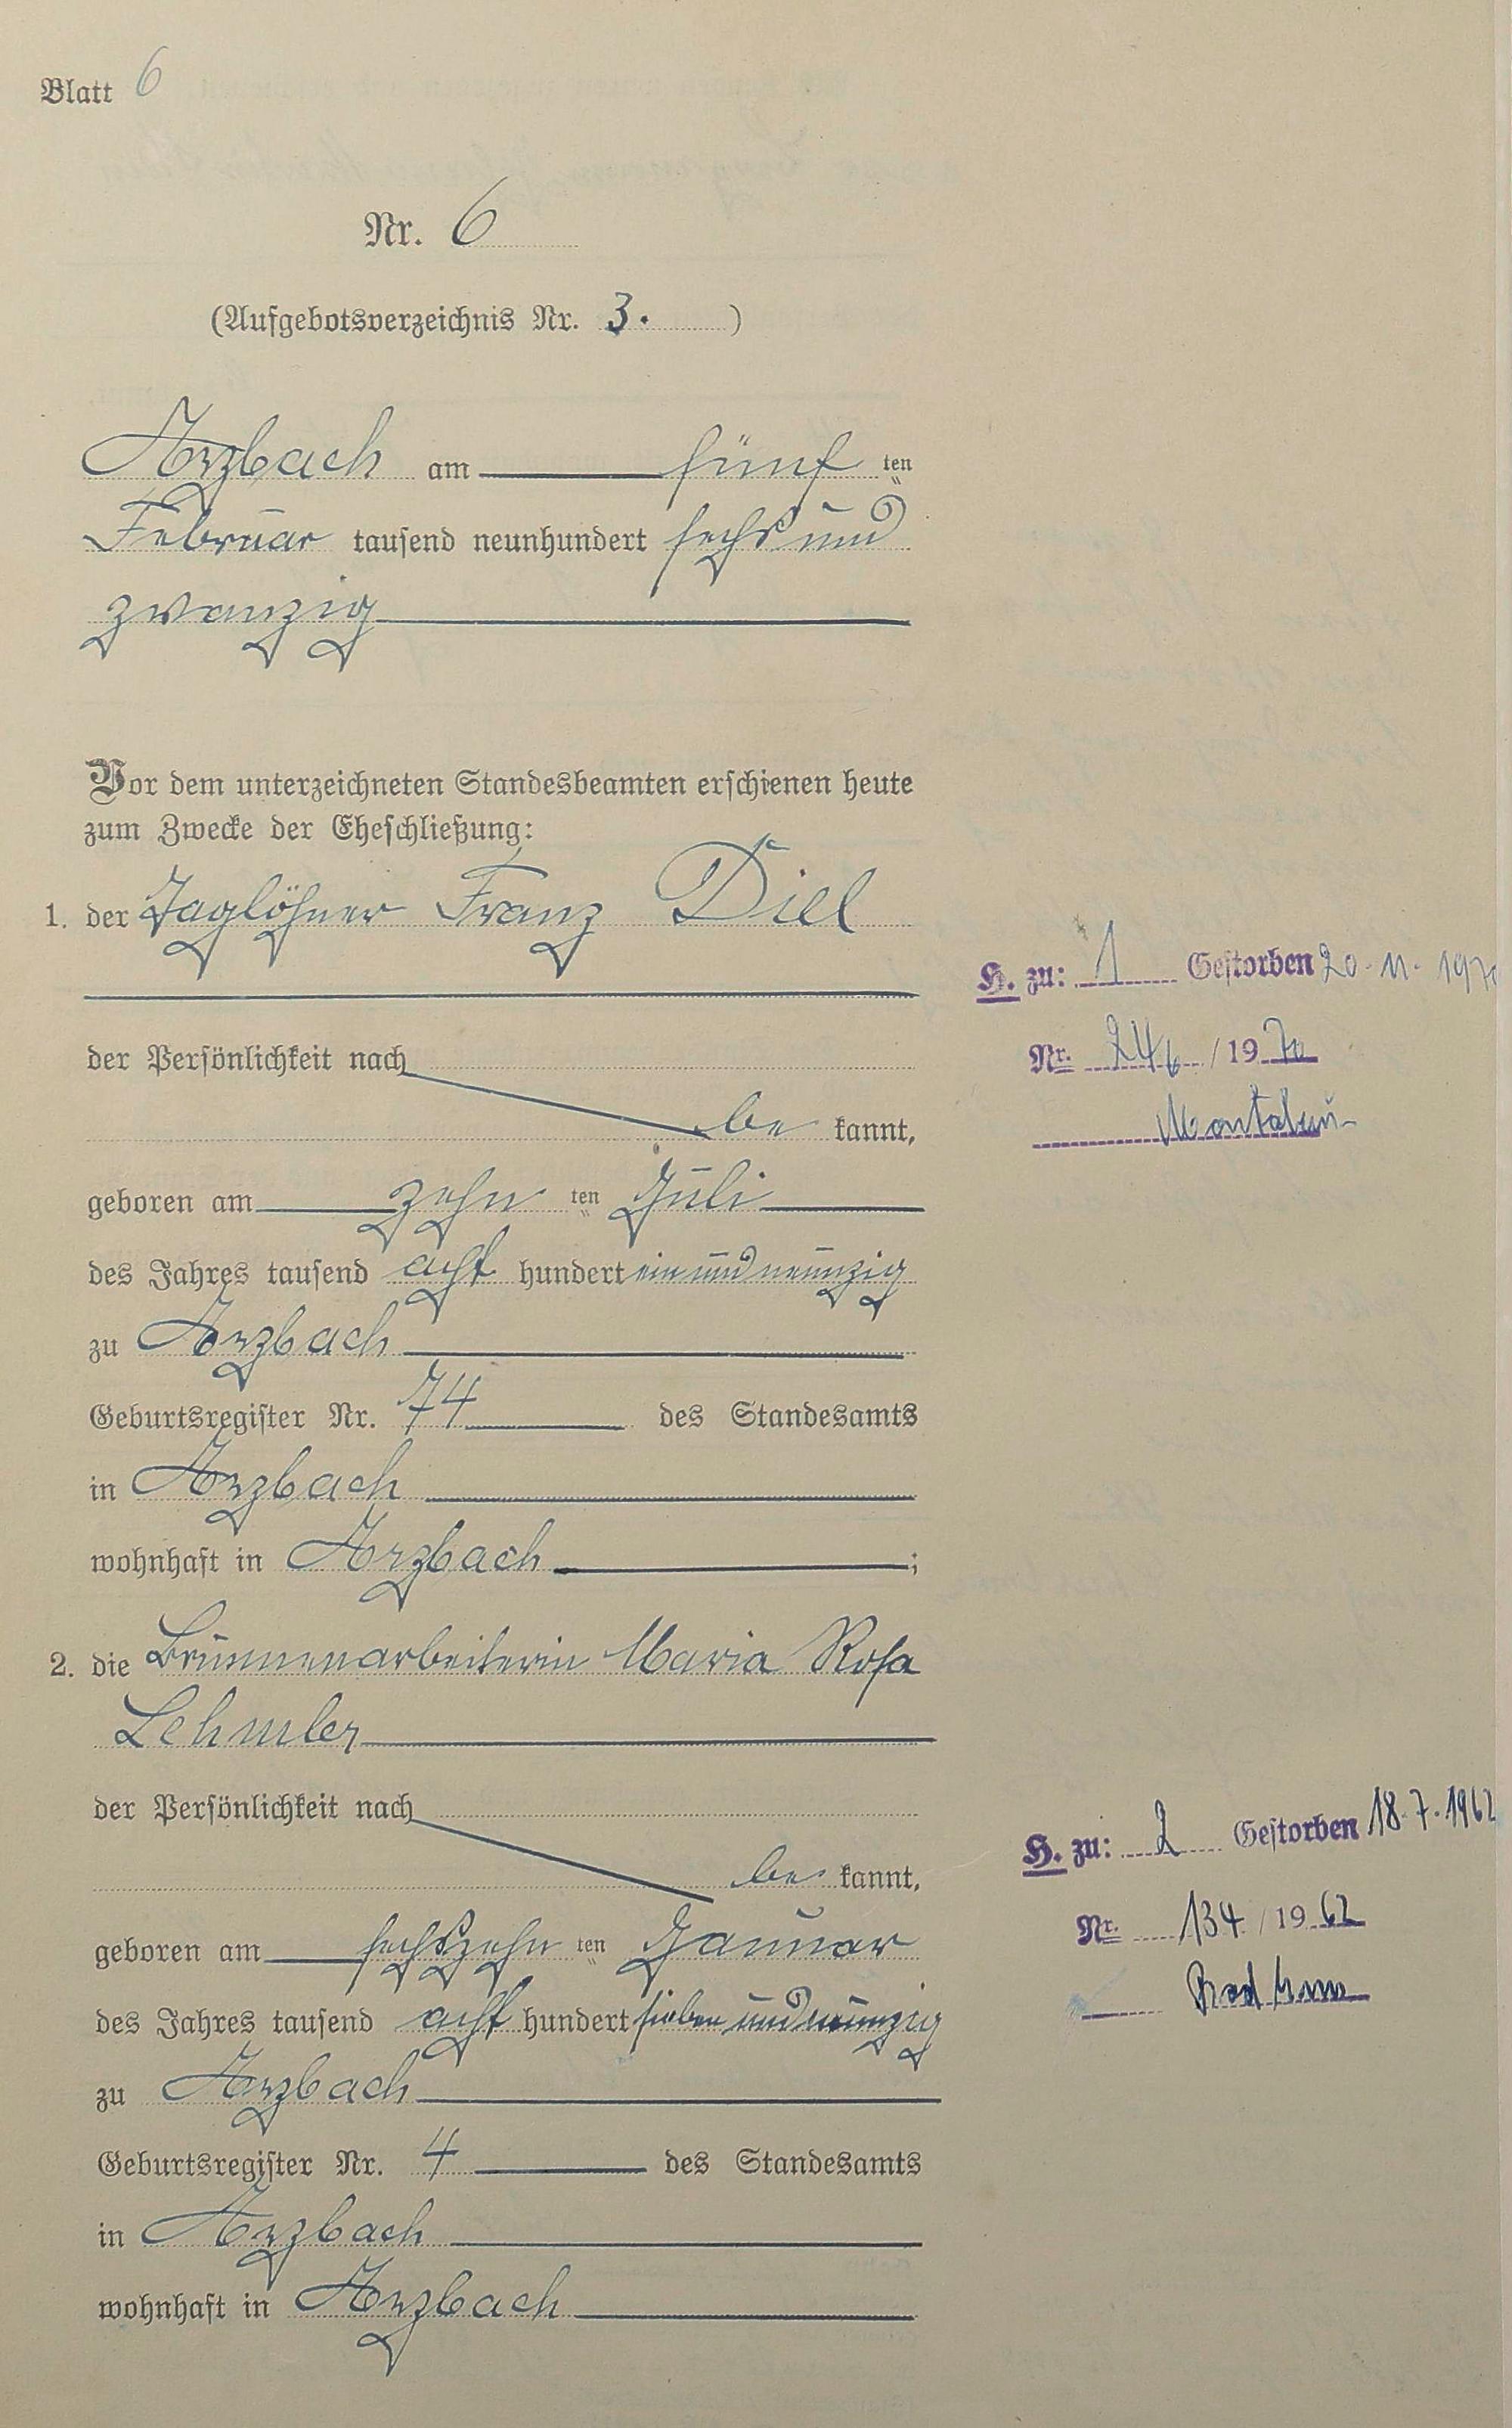 Blatt 6
Nr. 6
(Aufgebotsverzeichnis Nr. 3. )
Arzbach am fünf ten
Februar tausend neunhundert sechs und
zwanzig
Vor dem unterzeichneten Standesbeamten erschienen heute
zum Zwecke der Eheschließung:
1. der Taglöhner Franz Diel
der Persönlichkeit nach
be kannt,
geboren am zehn ten Juli
des Jahres tausend acht hundert ein und neunzig
zu Arzbach
Geburtsregister Nr. 74 des Standesamts
in Arzbach
wohnhaft in Arzbach ;
2. die Brunnenarbeiterin Maria Rosa
Lehmler
der Persönlichkeit nach
be kannt,
geboren am sechszehn ten Januar
des Jahres tausend acht hundert sieben und neunzig
zu Arzbach
Geburtsregister Nr. 4 des Standesamts
in Arzbach
wohnhaft in Arzbach
H. zu: 1 Gestorben 20.11.1970
Nr. 246 / 1970
Montabaur
H. zu: 2 Gestorben 18.7.1962
Nr. 134 / 1962
Bad Ems